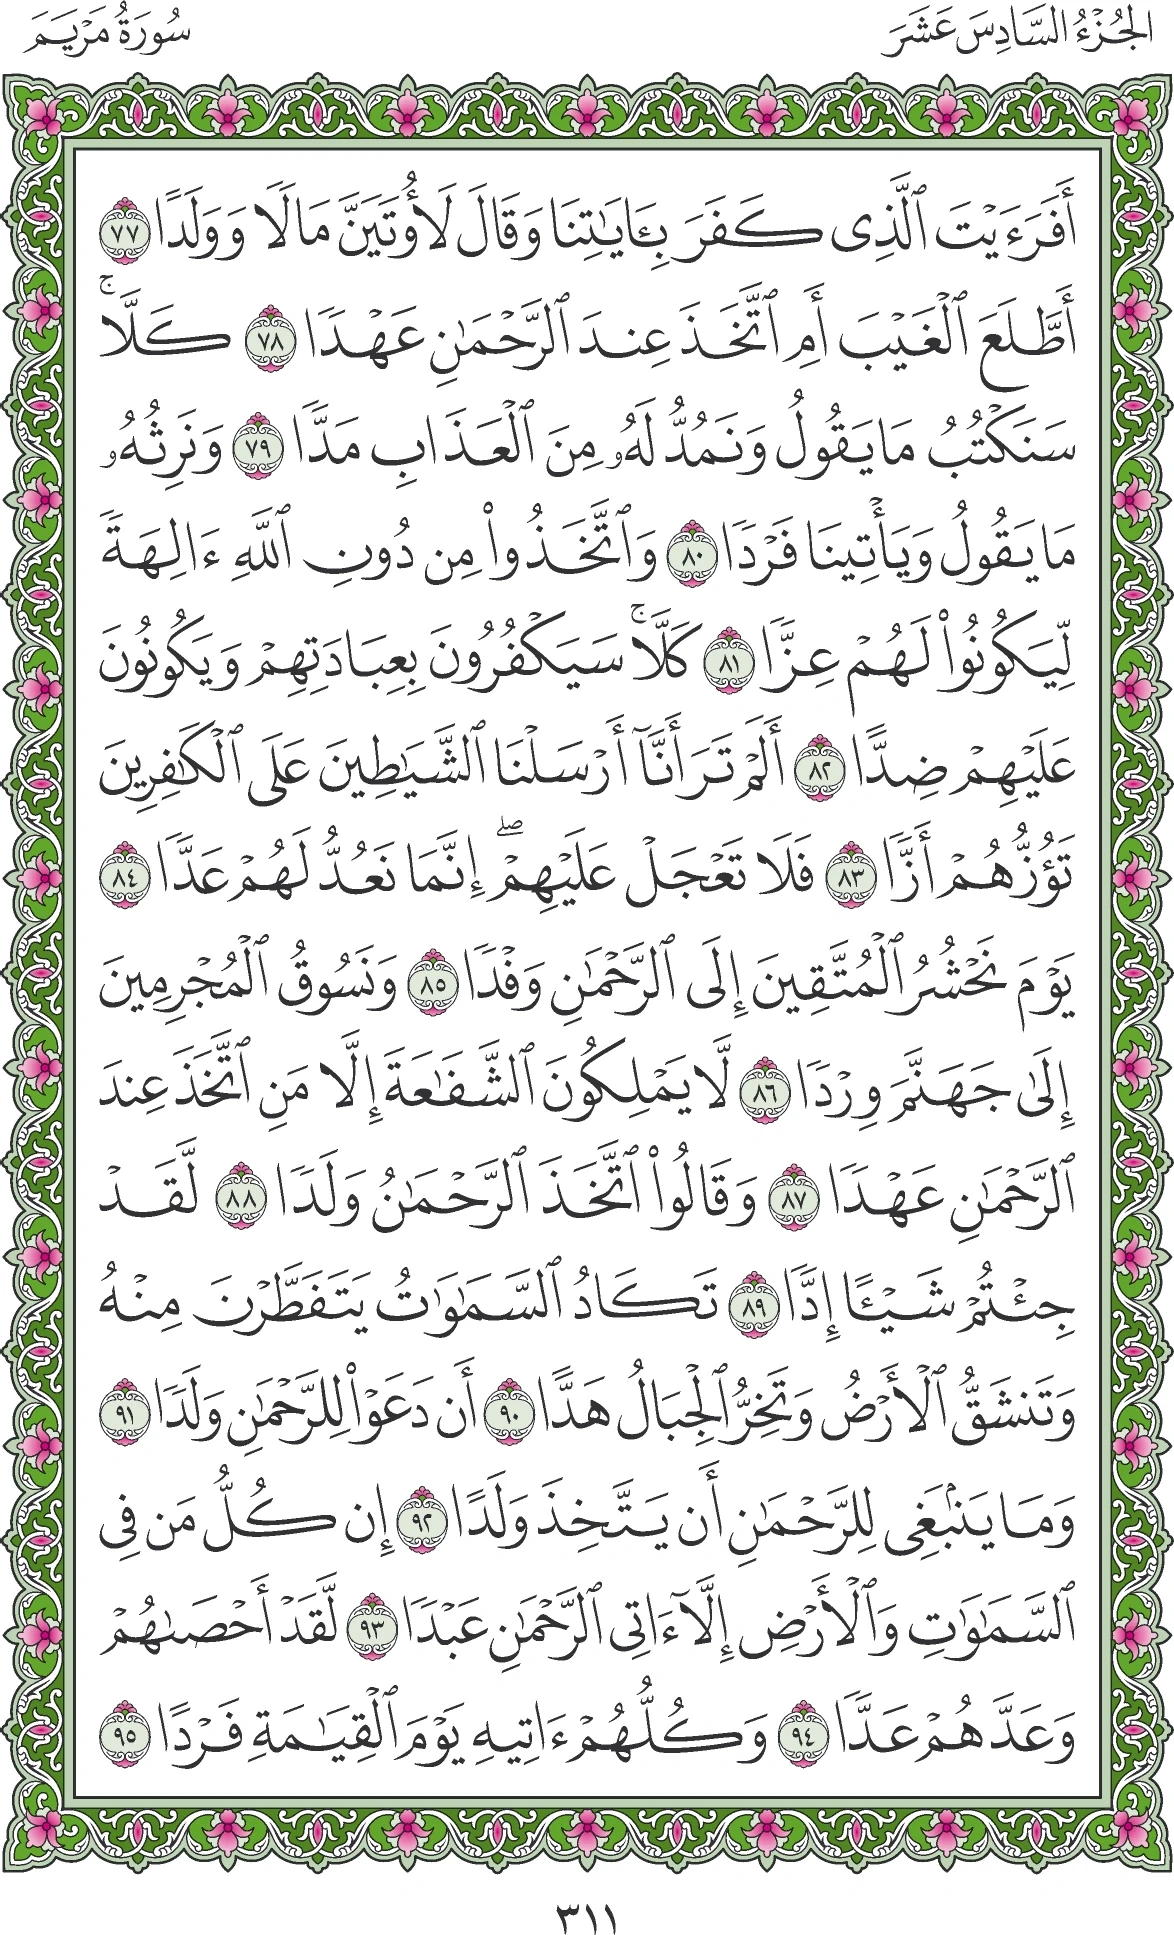 الجُزْءُ السَّادِسَ عَشَرَ
سُورَةُ مَرْيَمَ
أَفَرَءَيْتَ ٱلَّذِى كَفَرَ بِـَٔايَٰتِنَا وَقَالَ لَأُوتَيَنَّ مَالًا وَوَلَدًا ٧٧
أَطَّلَعَ ٱلْغَيْبَ أَمِ ٱتَّخَذَ عِندَ ٱلرَّحْمَٰنِ عَهْدًا ٧٨ كَلَّا ۚ
سَنَكْتُبُ مَا يَقُولُ وَنَمُدُّ لَهُۥ مِنَ ٱلْعَذَابِ مَدًّا ٧٩ وَنَرِثُهُۥ
مَا يَقُولُ وَيَأْتِينَا فَرْدًا ٨٠ وَٱتَّخَذُوا۟ مِن دُونِ ٱللَّهِ ءَالِهَةً
لِّيَكُونُوا۟ لَهُمْ عِزًّا ٨١ كَلَّا ۚ سَيَكْفُرُونَ بِعِبَادَتِهِمْ وَيَكُونُونَ
عَلَيْهِمْ ضِدًّا ٨٢ أَلَمْ تَرَ أَنَّآ أَرْسَلْنَا ٱلشَّيَٰطِينَ عَلَى ٱلْكَٰفِرِينَ
تَؤُزُّهُمْ أَزًّا ٨٣ فَلَا تَعْجَلْ عَلَيْهِمْ ۖ إِنَّمَا نَعُدُّ لَهُمْ عَدًّا ٨٤
يَوْمَ نَحْشُرُ ٱلْمُتَّقِينَ إِلَى ٱلرَّحْمَٰنِ وَفْدًا ٨٥ وَنَسُوقُ ٱلْمُجْرِمِينَ
إِلَىٰ جَهَنَّمَ وِرْدًا ٨٦ لَّا يَمْلِكُونَ ٱلشَّفَٰعَةَ إِلَّا مَنِ ٱتَّخَذَ عِندَ
ٱلرَّحْمَٰنِ عَهْدًا ٨٧ وَقَالُوا۟ ٱتَّخَذَ ٱلرَّحْمَٰنُ وَلَدًا ٨٨ لَّقَدْ
جِئْتُمْ شَيْـًٔا إِدًّا ٨٩ تَكَادُ ٱلسَّمَٰوَٰتُ يَتَفَطَّرْنَ مِنْهُ
وَتَنشَقُّ ٱلْأَرْضُ وَتَخِرُّ ٱلْجِبَالُ هَدًّا ٩٠ أَن دَعَوْا۟ لِلرَّحْمَٰنِ وَلَدًا ٩١
وَمَا يَنۢبَغِى لِلرَّحْمَٰنِ أَن يَتَّخِذَ وَلَدًا ٩٢ إِن كُلُّ مَن فِى
ٱلسَّمَٰوَٰتِ وَٱلْأَرْضِ إِلَّآ ءَاتِى ٱلرَّحْمَٰنِ عَبْدًا ٩٣ لَّقَدْ أَحْصَىٰهُمْ
وَعَدَّهُمْ عَدًّا ٩٤ وَكُلُّهُمْ ءَاتِيهِ يَوْمَ ٱلْقِيَٰمَةِ فَرْدًا ٩٥
٣١١